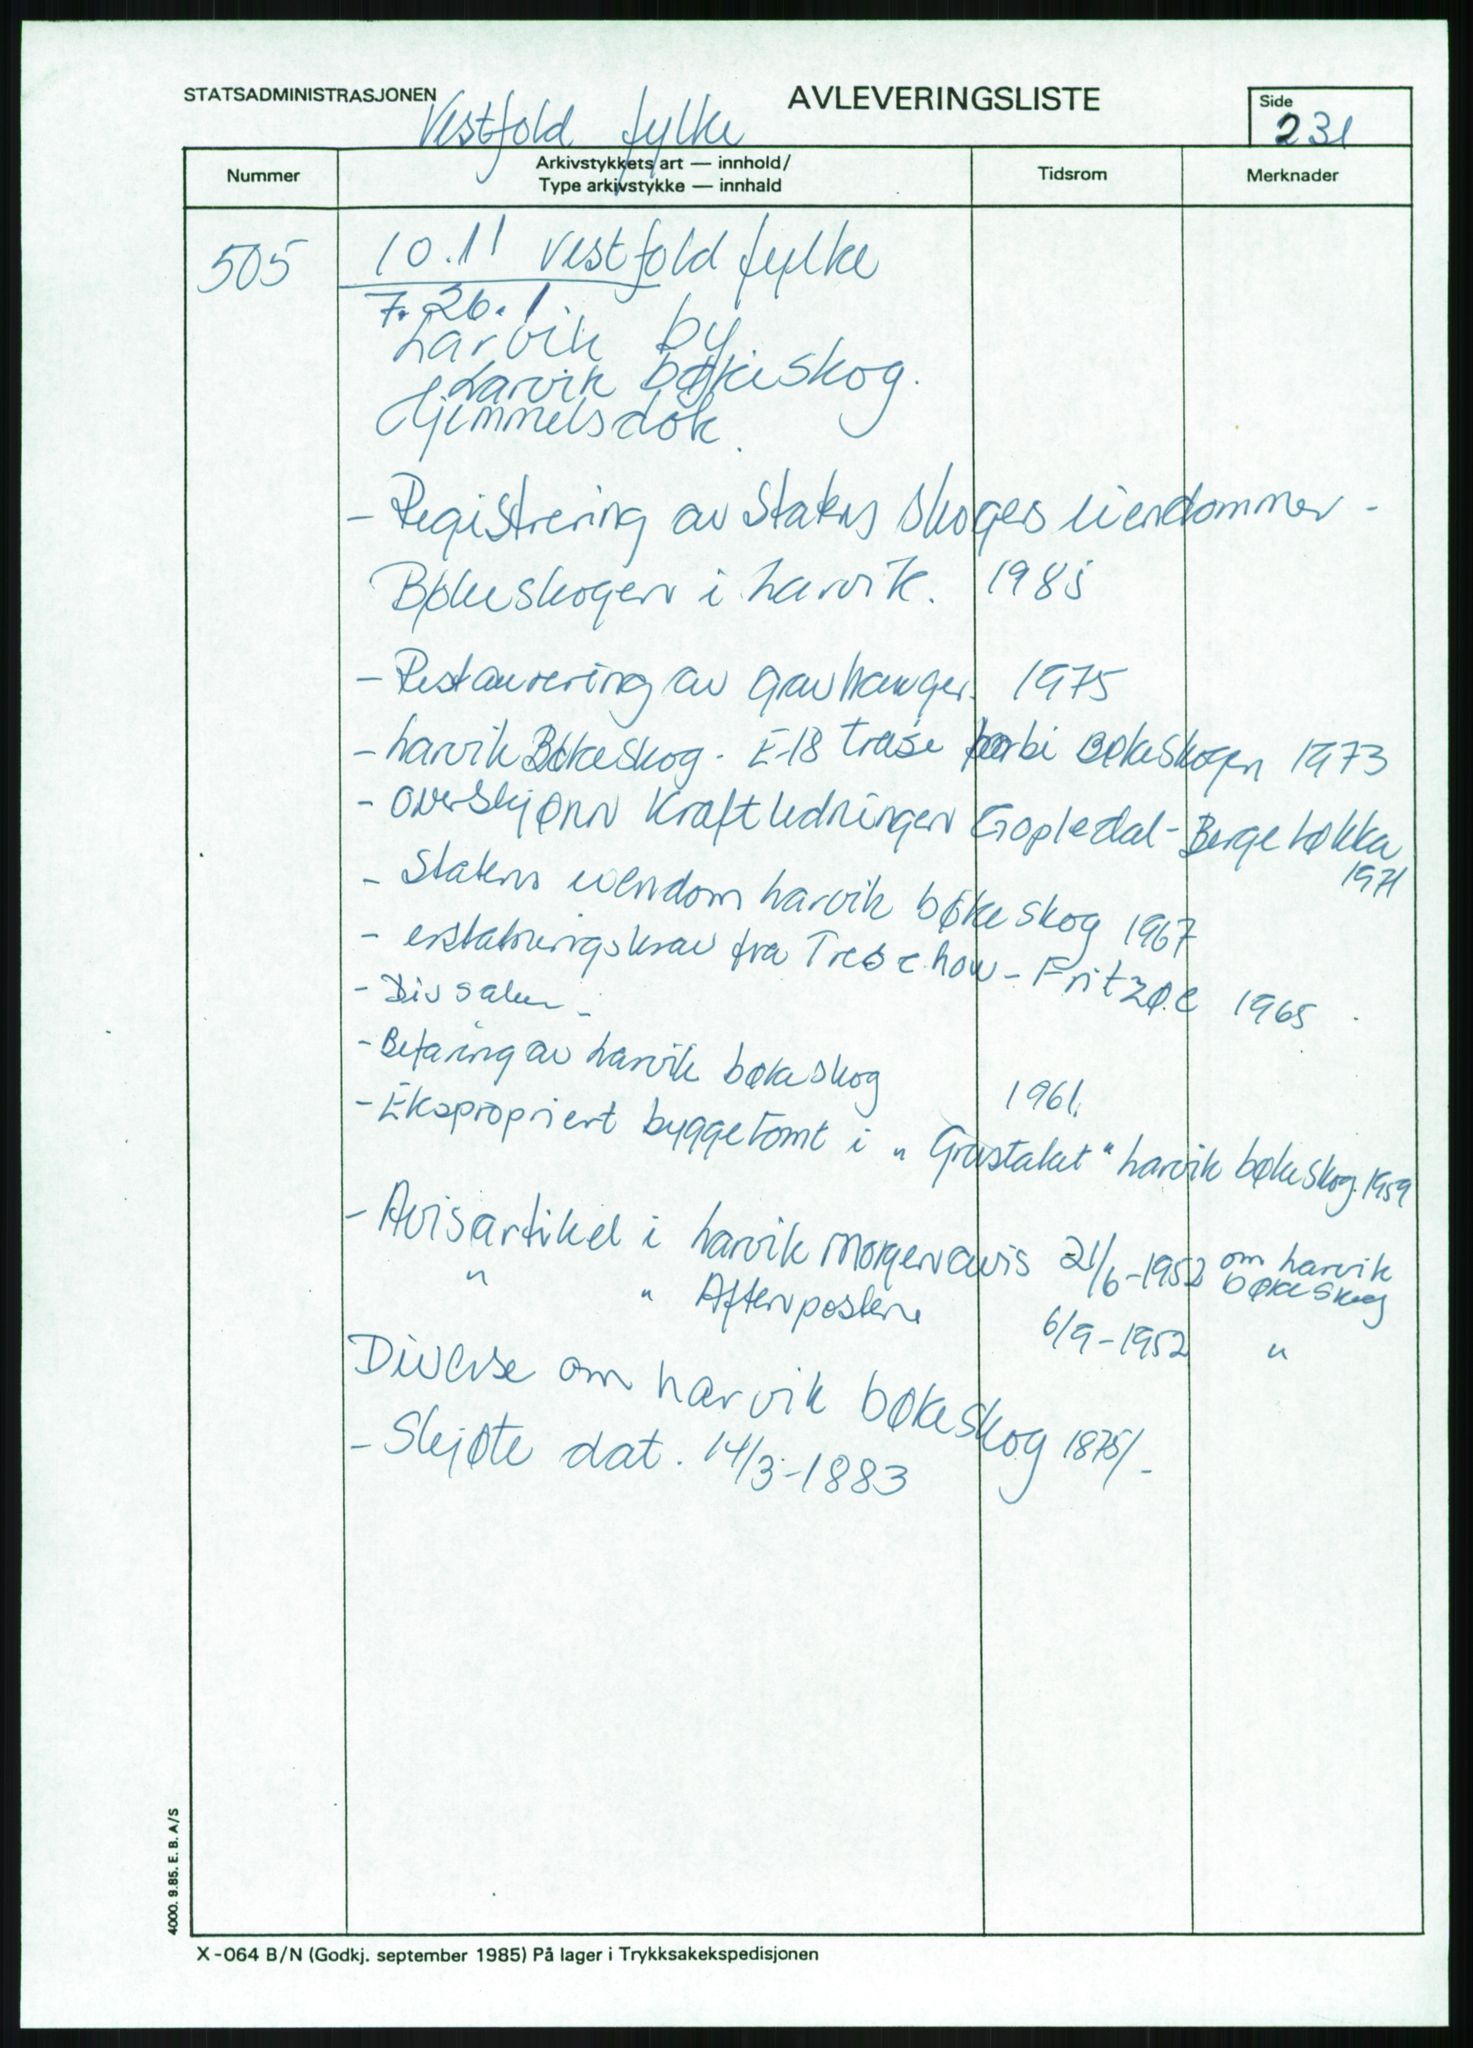 STATSADMINISTRASJONEN
AVLEVERINGSLISTE
Side
231
Vestfold fylke
Nummer
Arkivstykkets art — innhold/
Type arkivstykke — innhald
Tidsrom
Merknader
505
10.11 Vestfold fylke
7.26.1
Larvik by
Larvik bøkeskog.
Hjemmelsdok.
- Registrering av Statens Skoges eiendommer -
Bøkeskogen i Larvik. 1985
- Restaurering av gravhauger. 1975
- Larvik Bøkeskog. E-18 trase forbi Bøkeskogen 1973
- Overskjønn Kraftledningen Gopledal - Bergeløkka
1971
- Statens eiendom Larvik bøkeskog 1967
- erstatningskrav fra Treschow - Fritzøe 1965
- Div saker -
- Befaring av Larvik bøkeskog 1961.
- Ekspropriert byggetomt i „ Gravstaket “ Larvik bøkeskog. 1959
- Avisartikel i Larvik Morgenavis 21/6-1952 om Larvik
bøkeskog
" " Aftenposten 6/9-1952 "
Diverse om Larvik bøkeskog 1875/-
- Skjøte dat. 14/3-1883
4000. 9.85. E. B. A/S
X-064 B/N (Godkj. september 1985) På lager i Trykksakekspedisjonen